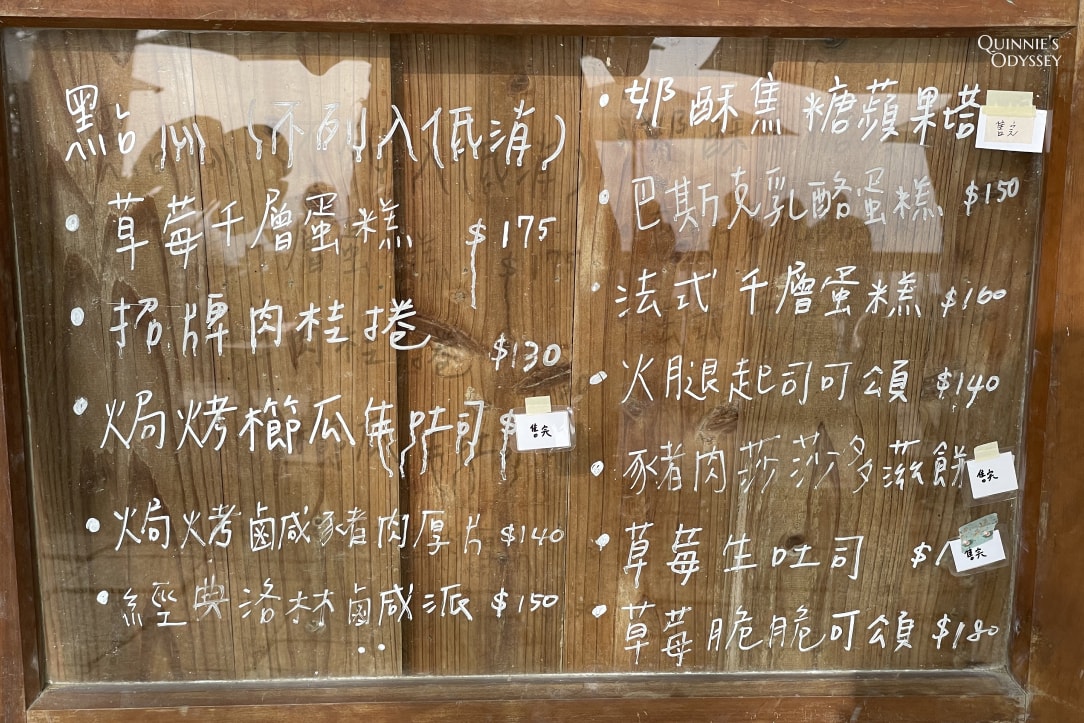 QUINNIE'S
ODYSSEY
點心（不列入低消）
• 草莓千層蛋糕 $175
• 招牌肉桂捲 $130
• 焗烤櫛瓜隼吐司 $ 售完
• 焗烤鹵咸豬肉厚片 $140
• 經典洛林鹵咸派 $150
• 耶酥焦糖蘋果塔 售完
• 巴斯克乳酪蛋糕 $150
• 法式千層蛋糕 $160
• 火腿起司可頌 $140
• 豬肉莎莎多滋餅 售完
• 草莓生吐司 $1 售完
• 草莓脆脆可頌 $180